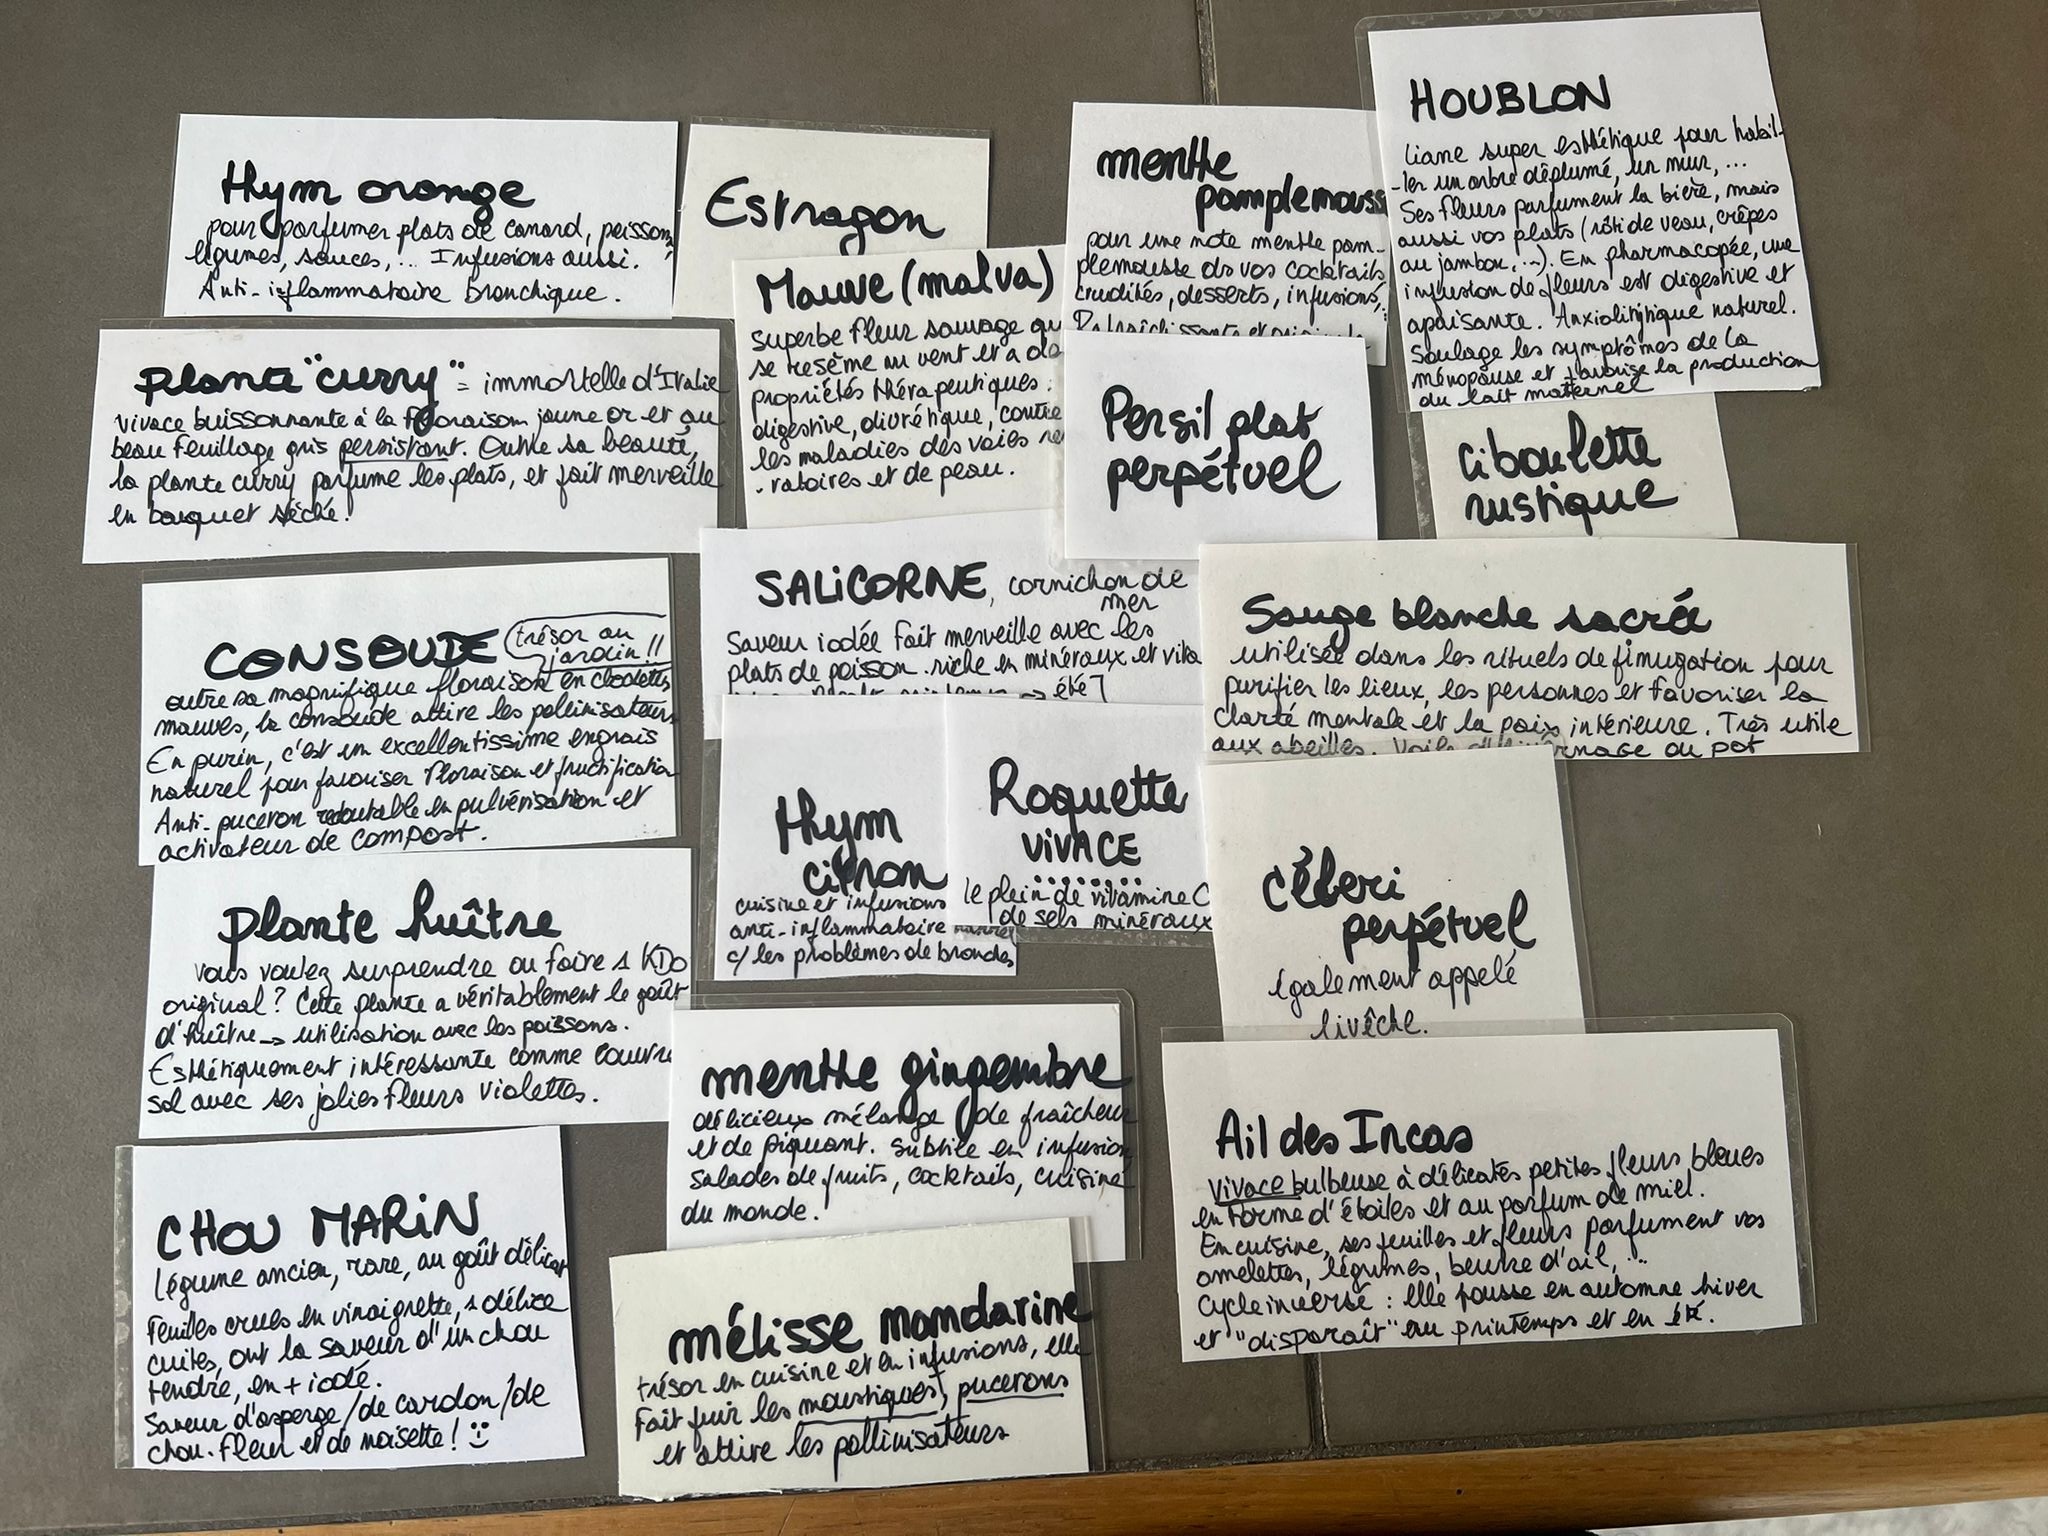 thym orange
pour parfumer plats de canard, poissons,
légumes, sauces, ... Infusions aussi.
Anti-inflammatoire bronchique.
Estragon
menthe
pamplemouss
pour une note menthe pam-
plemousse ds vos cocktails
crudités, desserts, infusions,
HOUBLON
Liane super esthétique pour habil-
-ler un arbre déplumé, un mur, ...
Ses fleurs parfument la bière, mais
aussi vos plats (rôti de veau, crêpes
au jambon, ...). En pharmacopée, une
infusion de fleurs est digestive et
apaisante. Anxiolitytique naturel.
Soulage les symptômes de la
ménopause et favorise la production
du lait maternel
Mauve (malva)
superbe fleur sauvage qu
se resème au vent et a
propriétés thérapeutiques :
digestive, diurétique, contre
les maladies des voies
ratoires et de peau.
Persil plat
perpétuel
ciboulette
rustique
plante "curry" = immortelle d'Italie
vivace buissonnante à la floraison jaune or et au
beau feuillage gris persistant. Outre sa beauté,
la plante curry parfume les plats, et fait merveille
en bouquet séché.
SALiCORNE, cornichon de
mer
Saveur iodée fait merveille avec les
plats de poisson. riche en minéraux et vita
→ été]
Sauge blanche sacrée
utilisée dans les rituels de fimugation pour
purifier les lieux, les personnes et favoriser la
clarté mentale et la paix intérieure. Très utile
aux abeilles. Voile d'hivernage ou pot
CONSOUDE (trésor au
jardin !!
outre sa magnifique floraison en clochettes
mauves, la consoude attire les pollinisateurs
En purin, c'est un excellentissime engrais
naturel pour favoriser floraison et fructification
Anti-puceron redoutable en pulvérisation et
activateur de compost.
thym
citron
cuisine et infusions
anti-inflammatoire naturel
c/ les problèmes de bronches
Roquette
ViVACE
le plein de vitamine C
de sels minéraux
céleri
perpétuel
également appelé
livêche.
plante huître
vous voulez surprendre ou faire 1 KDo
original ? Cette plante a véritablement le goût
d'huître → utilisation avec les poissons.
Esthétiquement intéressante comme couvre
sol avec ses jolies fleurs violettes.
menthe gingembre
délicieux mélange de fraîcheur
et de piquant. subtile en infusion
salades de fruits, cocktails, cuisine
du monde.
Ail des Incas
vivace bulbeuse à délicates petites fleurs bleues
en forme d'étoiles et au parfum de miel.
En cuisine, ses feuilles et fleurs parfument vos
omelettes, légumes, beurre d'ail, ...
Cycle inversé : elle pousse en automne hiver
et "disparaît" au printemps et en été.
CHOU MARiN
légume ancien, rare, au goût délicat
Feuilles crues en vinaigrette, 1 délice
cuites, ont la saveur d'un chou
tendre, en + iodé.
Saveur d'asperge/de cardon/de
chou-fleur et de noisette !
mélisse mandarine
trésor en cuisine et en infusions, elle
Fait fuir les moustiques, pucerons
et attire les pollinisateurs